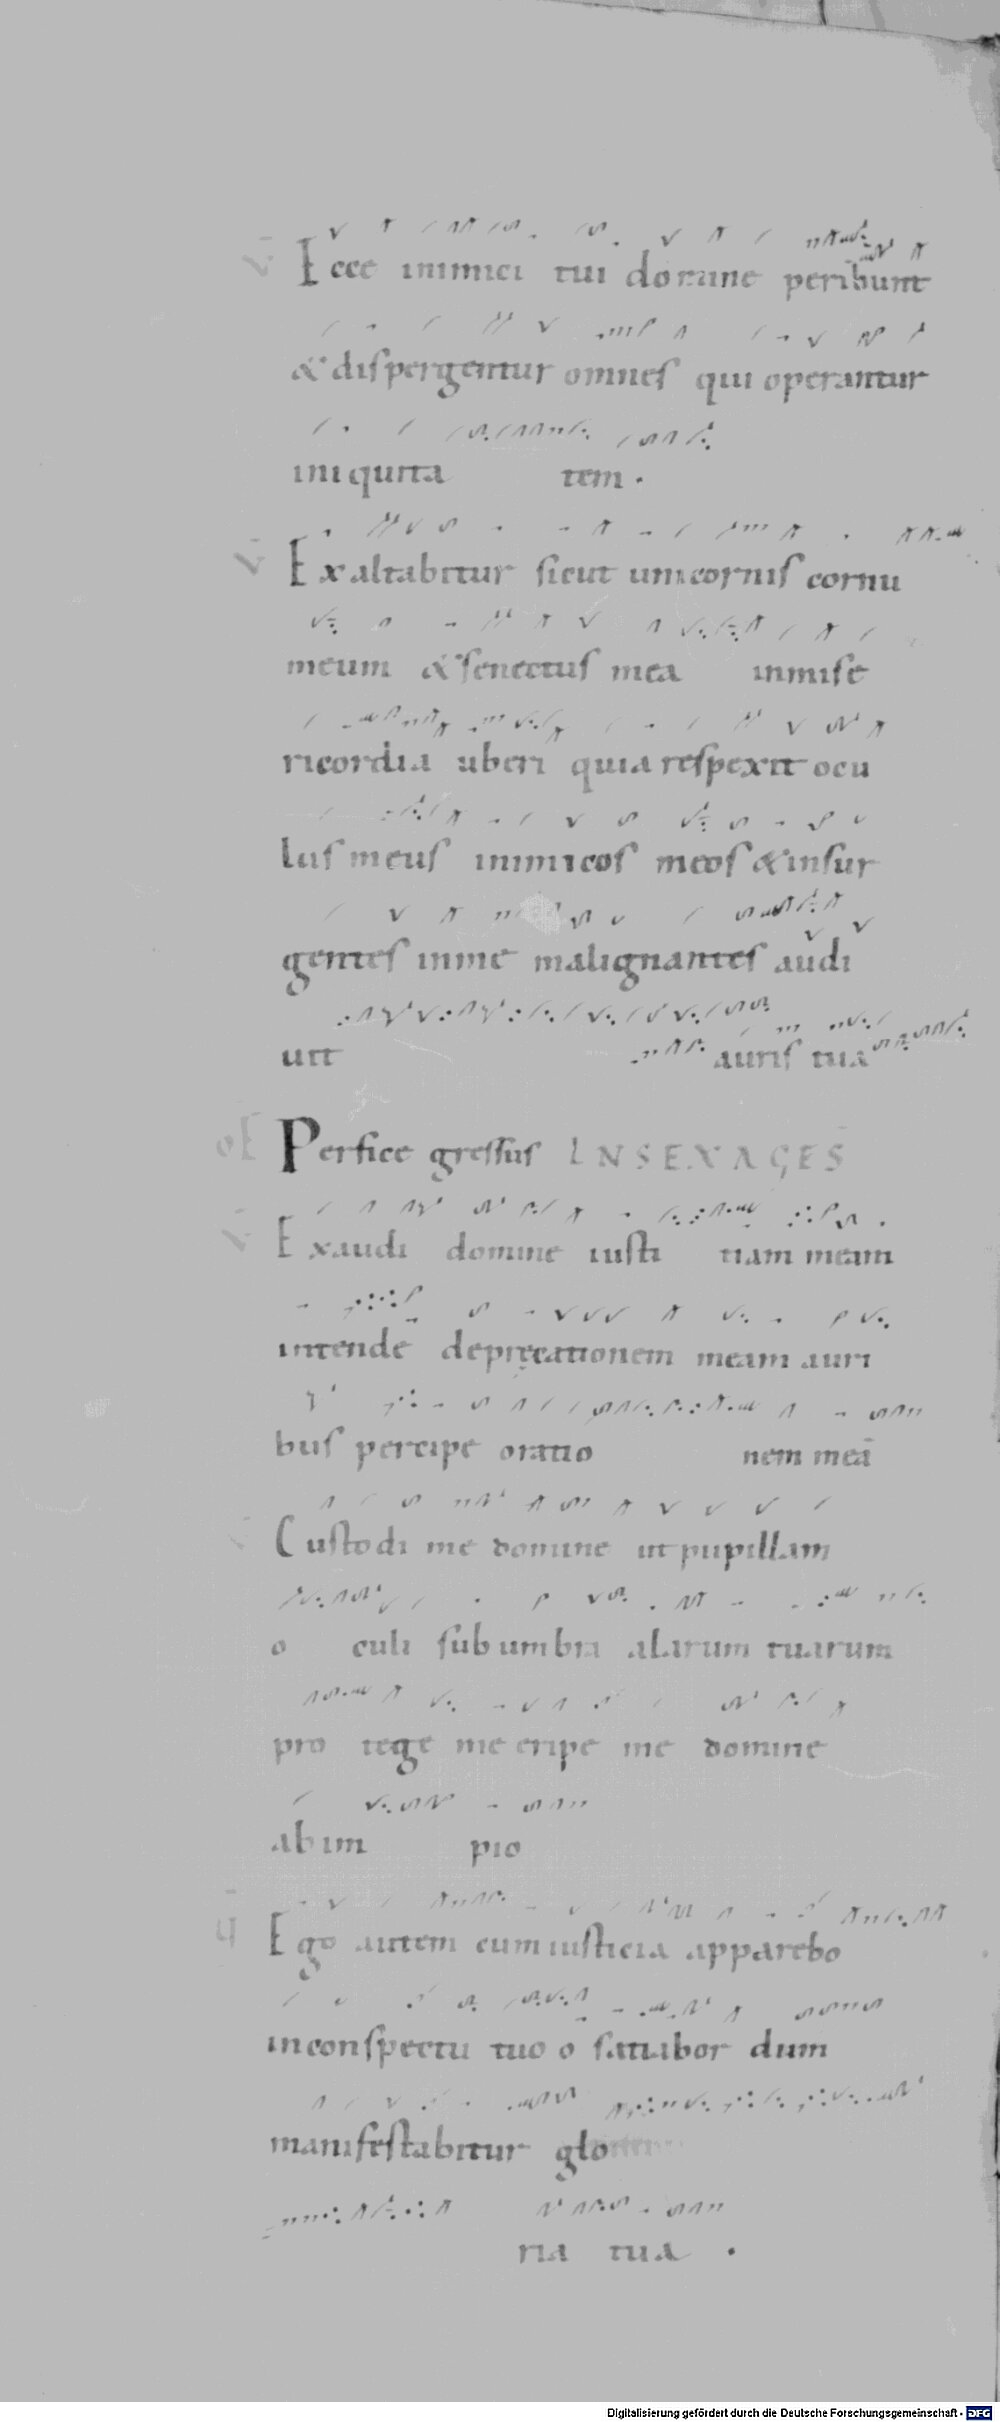 V̄ Ecce inimici tui domine peribunt
& dispergentur omnes qui operantur
iniquita tem.
V̄ Exaltabitur sicut unicornis cornu
meum & senectus mea inmise
ricordia uberi quia respexit ocu
lus meus inimicos meos & insur
gentes inme malignantes audi
uit auris tua
OF Perfice gressus IN SEXAGES̄
V̄ Exaudi domine iusti tiam meam
intende depręcationem meam auri
bus percipe oratio nem meā
Custodi me domine ut pupillam
o culi sub umbra alarum tuarum
pro tege me eripe me domine
ab im pio
Ego autem cum iusticia apparebo
in conspectu tuo o satiabor dum
manifestabitur glo
ria tua.
Digitalisierung gefördert durch die Deutsche Forschungsgemeinschaft - DFG